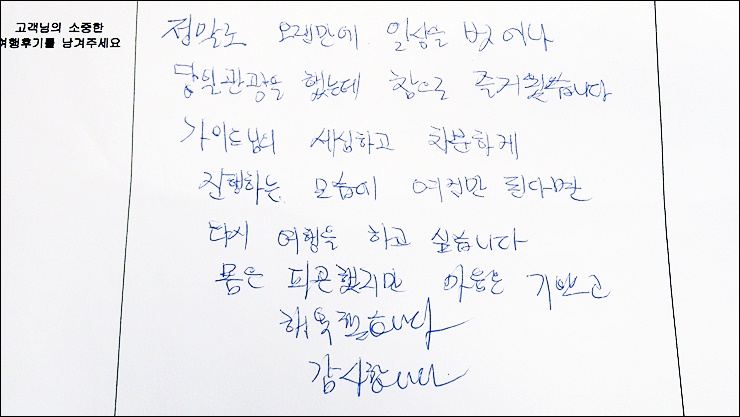 고객님의 소중한
여행후기를 남겨주세요
정말로 오랜만에 일상을 벗어나
당일관광을 했는데 참으로 즐거웠습니다
가이드님의 세심하고 차분하게
진행하는 모습에 여건만 된다면
다시 여행을 하고 싶습니다
몸은 피곤했지만 마음은 기쁘고
행복했습니다
감사합니다